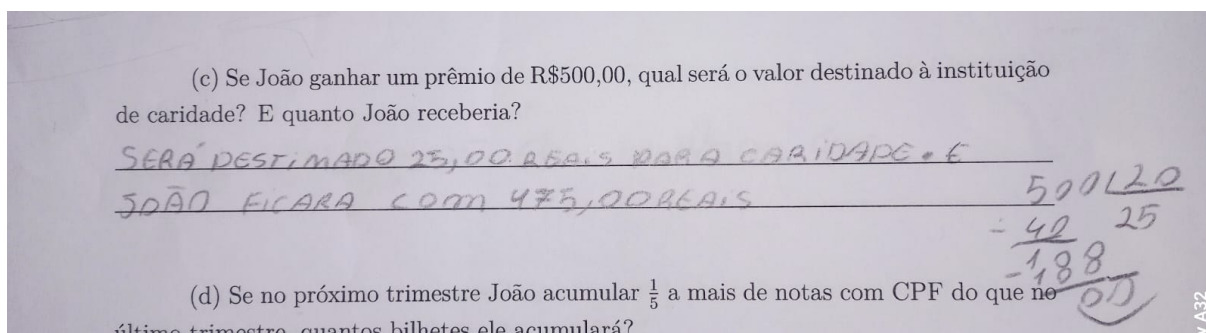 (c) Se João ganhar um prêmio de R$500,00, qual será o valor destinado à instituição
de caridade? E quanto João receberia?
SERÁ DESTIMADO 25,00 REAIS PARA CARIDADE. E
JOÃO FICARA COM 475,00 REAIS
500 20
- 40 25
- 188
00
(d) Se no próximo trimestre João acumular 1/5 a mais de notas com CPF do que no
último trimestre, quantos bilhetes ele acumulará?
A32